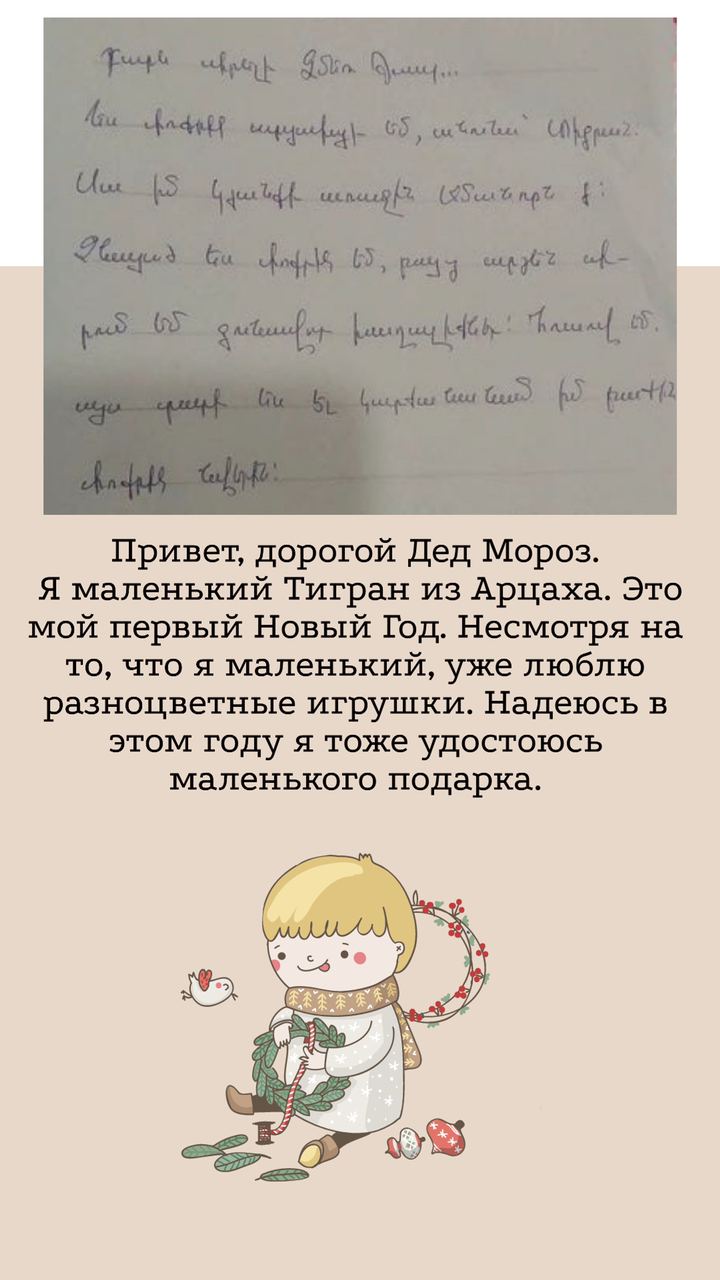 Բարև սիրելի Ձմեռ Պապ...
Ես փոքրիկ արցախցի եմ, անունս՝ Տիգրան:
Սա իմ կյանքի առաջին Ամանորն է:
Չնայած ես փոքրիկ եմ, բայց արդեն սի-
րում եմ գունավոր խաղալիքներ: Հուսով եմ.
այս տարի ես էլ կարժանանամ իմ բաժին
փոքրիկ նվերին:
Привет, дорогой Дед Мороз.
Я маленький Тигран из Арцаха. Это
мой первый Новый Год. Несмотря на
то, что я маленький, уже люблю
разноцветные игрушки. Надеюсь в
этом году я тоже удостоюсь
маленького подарка.